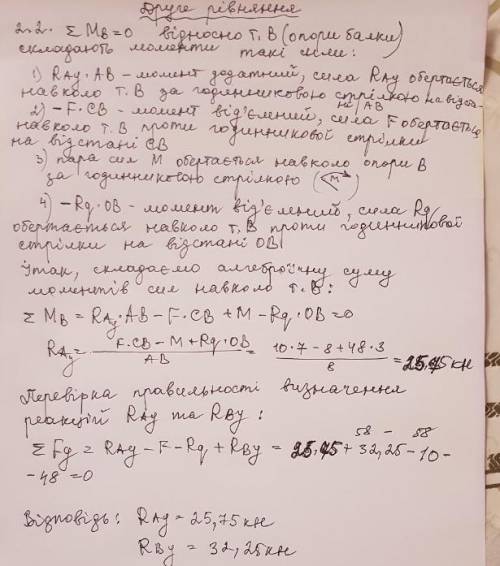 Друге рівняння
2.2. ΣM_B=0 відносно т.B (опори балки)
складають моменти такі сили:
1) R_Ay·AB – момент додатний, сила R_Ay обертається
навколо т.B за годинниковою стрілкою на відста-
ні AB
2) –F·CB – момент від'ємний, сила F обертається
навколо т.B проти годинникової стрілки
на відстані CB
3) пара сил M обертається навколо опори B
за годинниковою стрілкою (M)
4) –Rq·OB – момент від'ємний, сила Rq
обертається навколо т.B проти годинникової
стрілки на відстані OB
Ітак, складаємо алгебраїчну суму
моментів сил навколо т.B:
ΣM_B = R_Ay·AB – F·CB + M – Rq·OB = 0
R_Ay = (F·CB – M + Rq·OB)/AB = (10·7 – 8 + 48·3)/8 = 25,75 кн
Перевірка правильності визначення
реакцій R_Ay та R_By:
58 – 58
ΣFy = R_Ay – F – Rq + R_By = 25,75 + 32,25 – 10 –
– 48 = 0
Відповідь: R_Ay = 25,75 кн
R_By = 32,25 кн